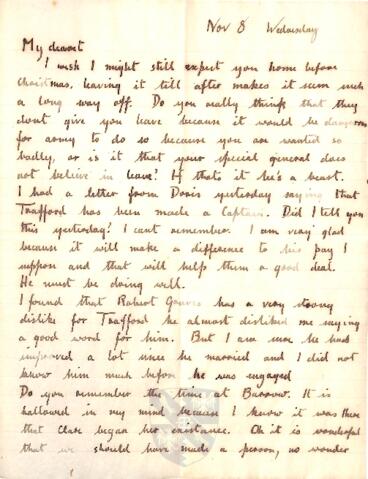 Nov 8 Wednesday
My dearest
I wish I might still expect you home before
Christmas, leaving it till after makes it seem such
a long way off. Do you really think that they
dont give you leave because it would be dangerous
for army to do so because you are wanted so
badly, or is it that your special general does
not believe in leave? If thats it he's a beast.
I had a letter from Doris yesterday saying that
Trafford has been made a Captain. Did I tell you
this yesterday? I cant remember. I am very glad
because it will make a difference to his pay I
suppose and that will help them a good deal.
He must be doing well.
I found that Robert Graves has a very strong
dislike for Trafford he almost disliked me saying
a good word for him. But I am sure he has
improved a lot since he married and I did not
know him much before he was engaged
Do you remember the time at Barrow. It is
hallowed in my mind because I know it was there
that Clare began her existance. Oh it is wonderful
that we should have made a person, no wonder